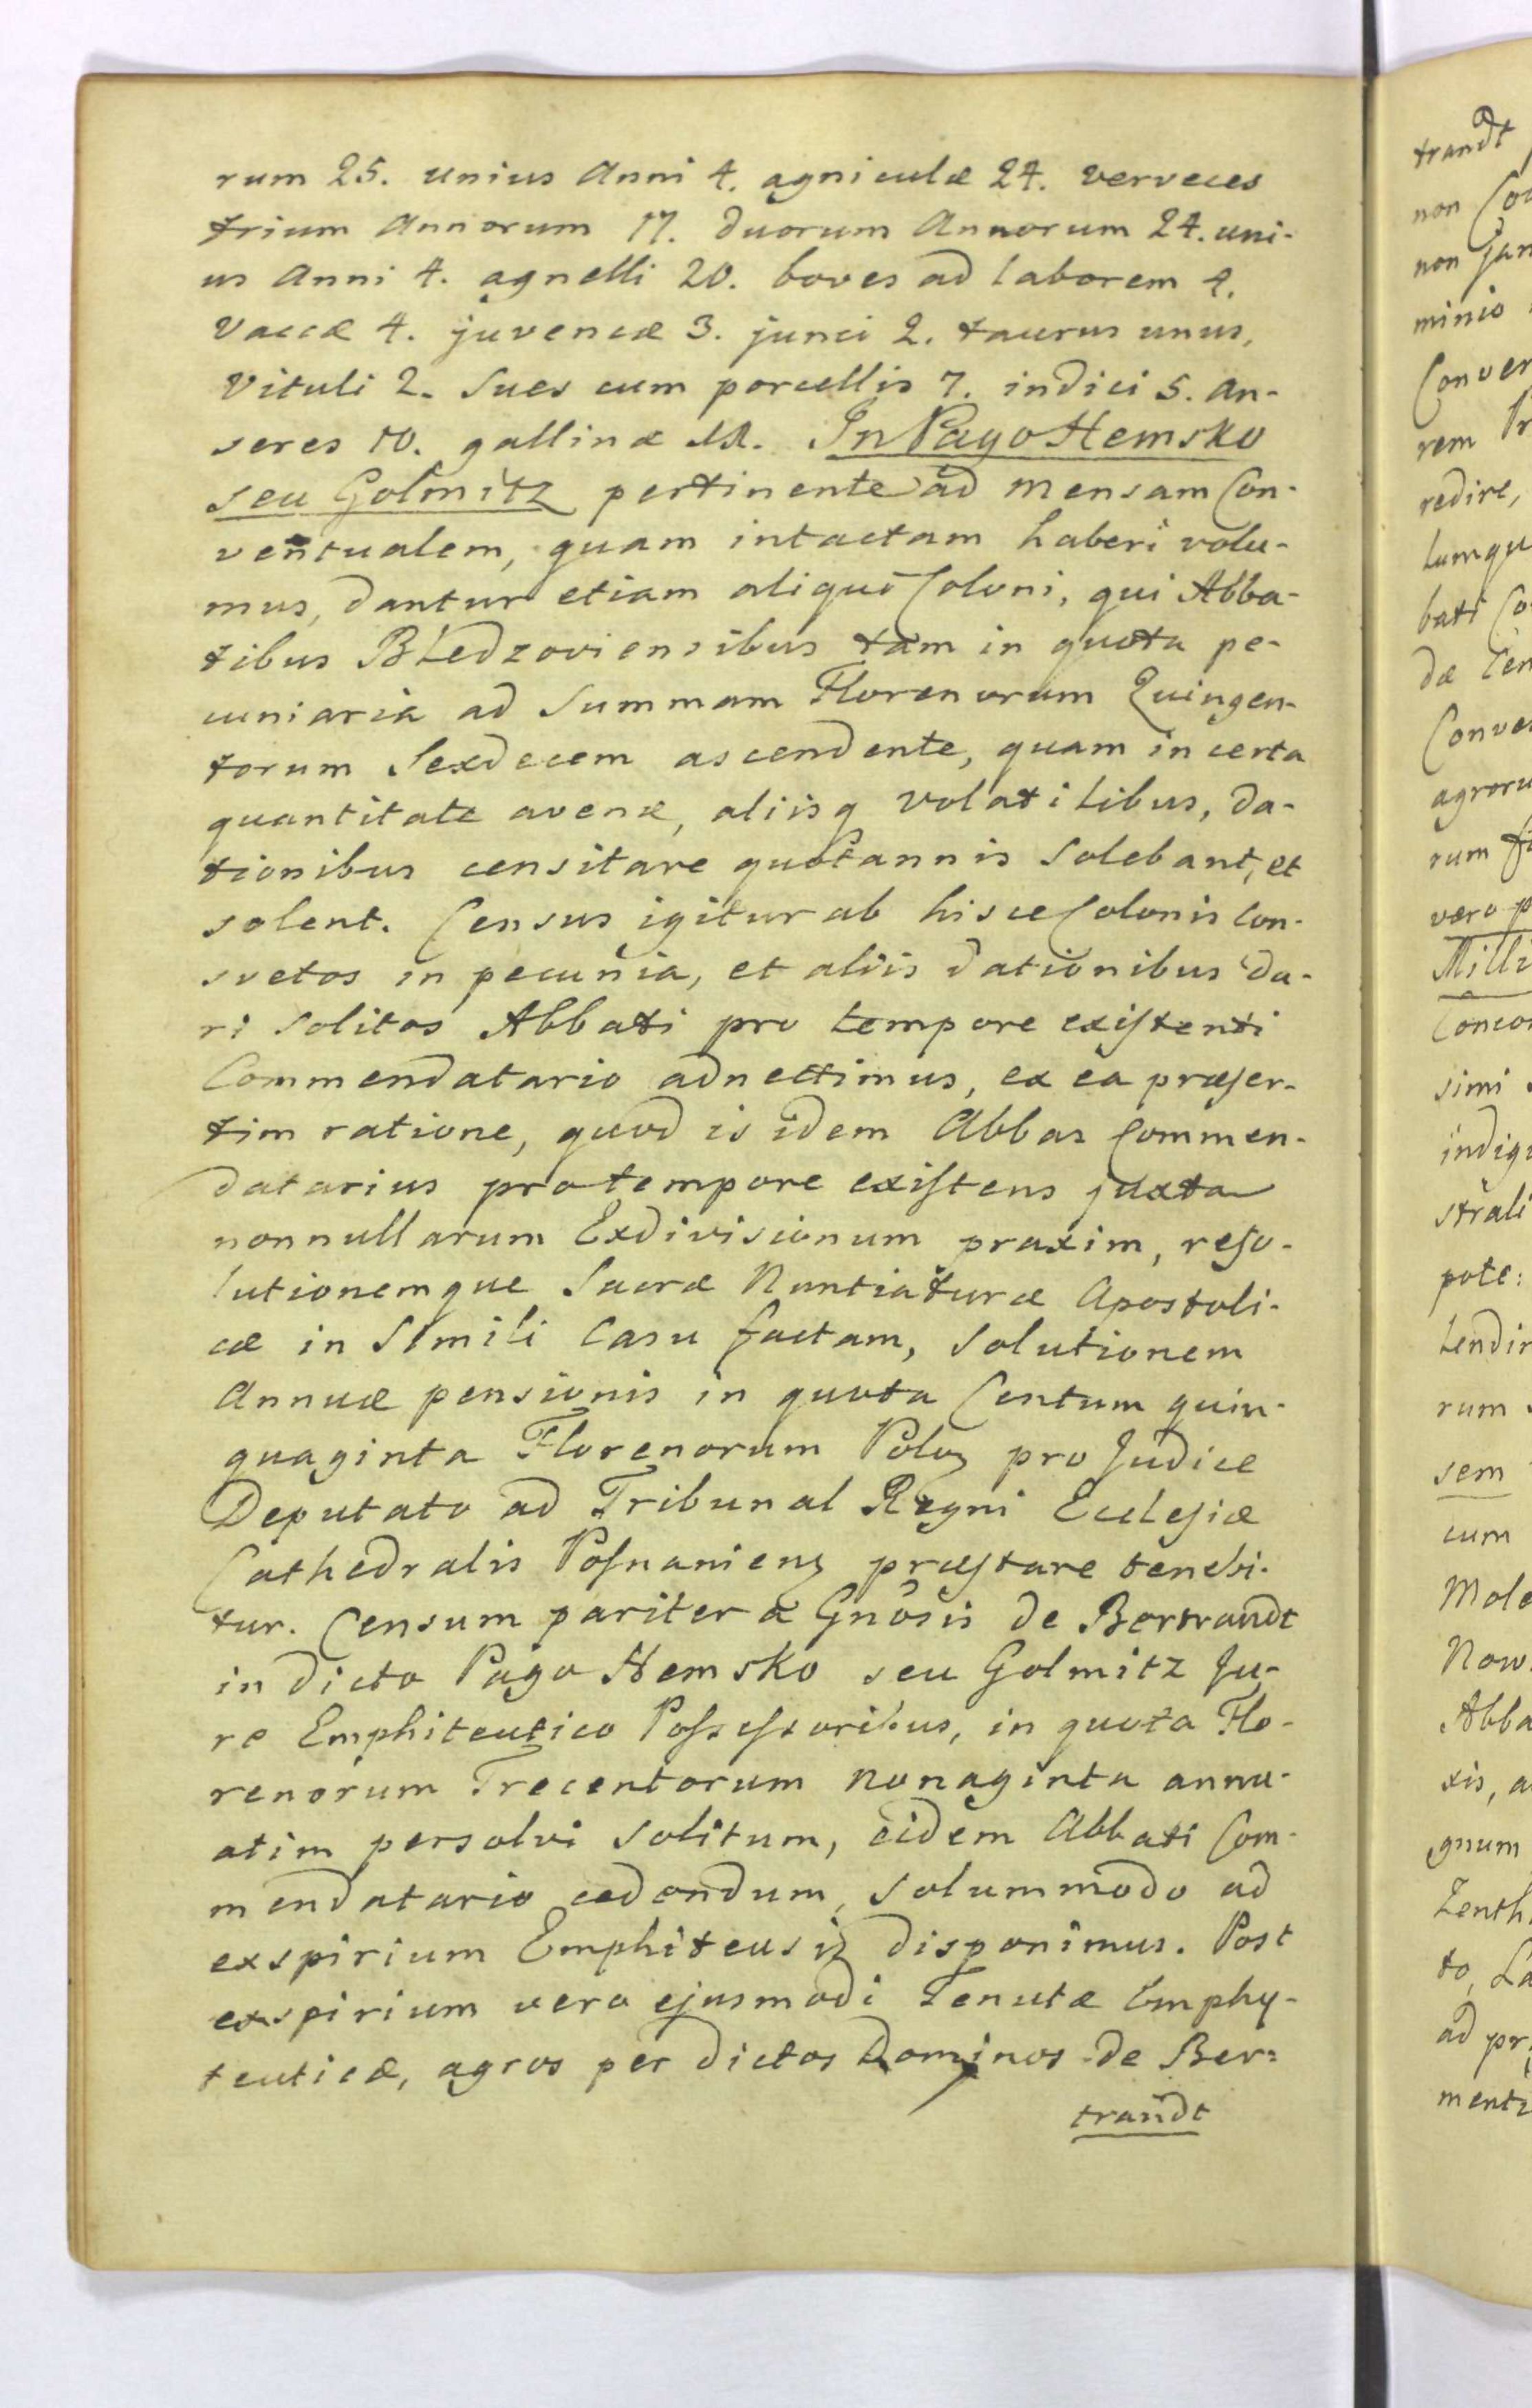 rum 25. unius Anni 4. agniculæ 24. verveces
trium Annorum 17. duorum Annorum 24. uni-
us Anni 4. agnelli 20. boves ad laborem 4.
Vaccæ 4. juvencæ 3. junci 2. taurus unus,
Vituli 2. Sues cum porcellis 7. indici 5. an-
seres 10. gallinæ In Pago Hemsko
seu Golmitz pertinente ad mensam Con-
ventualem, quam intactam haberi volu-
mus, dantur etiam aliqui Coloni, qui Abba-
tibus Bledzoviensibus tam in quota pe-
cuniaria ad Summam Florenorum Quingen-
torum Sexdecem ascendente, quam in certa
quantitate avenæ, aliisq volatilibus, da-
tionibus censitare quotannis Solebant, et
solent. Census igitur ab hisce Colonis con-
svetos in pecunia, et aliis dationibus da-
ri Solitos Abbati pro tempore existenti
Commendatario adnectimus, ex ea præser-
tim ratione, quod is idem Abbas Commen-
datarius pro tempore existens juxta
nonnullarum Exdivisionum praxim, reso-
lutionemque Sacræ Nuntiaturæ Apostoli-
cæ in Simili Casu factam, Solutionem
Annuæ pensionis in quota Centum quin-
quaginta Florenorum Poloz pro Judice
Deputato ad Tribunal Regni Ecclesiæ
Cathedralis Posnanienz præstare tenebi-
tur. Censum pariter a Gnosis de Bertrandt
in dicto Pago Hemsko seu Golmitz Ju-
re Emphiteutico Possessoribus, in quota Flo-
renorum Trecentorum Nonaginta annu-
atim persolvi Solitum, eidem Abbati Com-
mendatario cedendum, Solummodo ad
exspirium Emphiteusiz disponimus. Post
exspirium vero ejusmodi Tenutæ Emphy-
teuticæ, agros per dictos Dominos de Ber=
trandt
trandt
non
non
minio
Conver
rem
redire,
lumqu
bati
dæ
Conve
agroru
rum
vero
Mill
Concor
simi
indig
strali
pote:
tendi
rum
sem
cum
Mole
Now
Abba
xis, a
gnum
Zenth
to, La
ad pr
ment